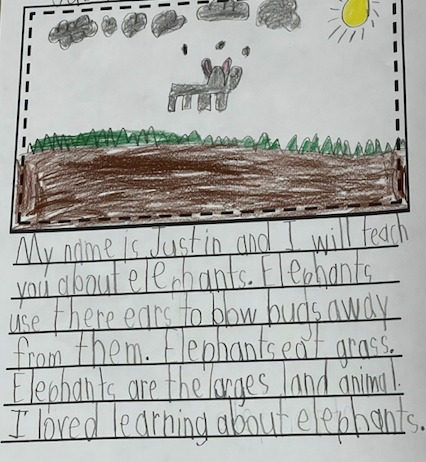 My name is Justin and I will teach
you about elephants. Elephants
use there ears to blow bugs away
from them. Elephants eat grass.
Elephants are the larges land animal.
I loved learning about elephants.